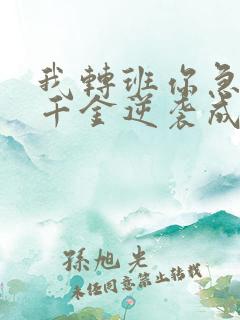 我轉班你急
千金逆袭成
孫旭光
未经同意禁止转载